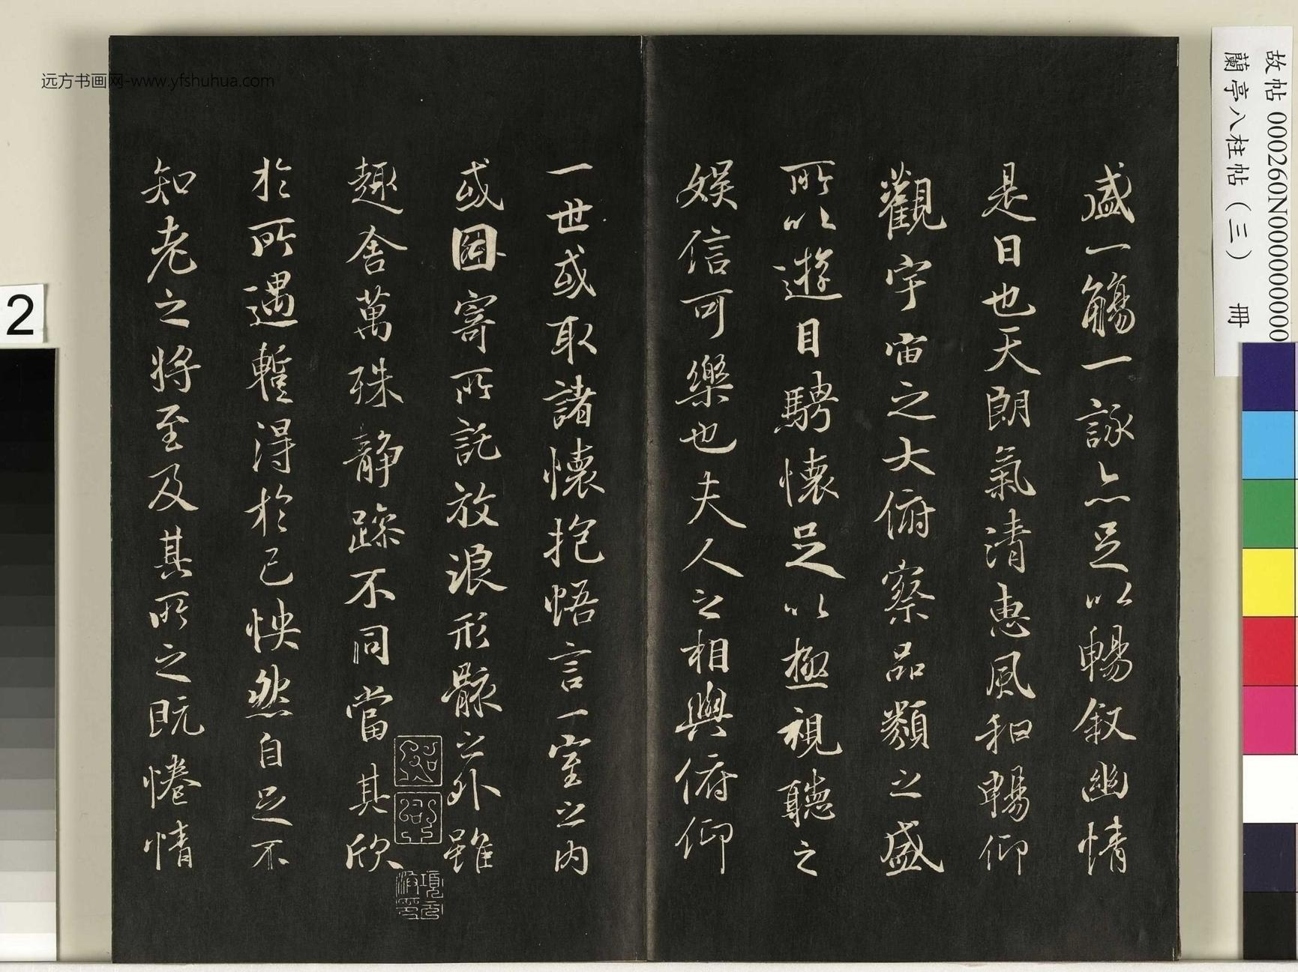 盛一觴一詠亦足以暢叙幽情
是日也天朗氣清惠風和暢仰
觀宇宙之大俯察品類之盛
所以遊目騁懷足以極視聽之
娱信可樂也夫人之相與俯仰
一世或取諸懷抱悟言一室之内
或因寄所託放浪形骸之外雖
趣舍萬殊静躁不同當其欣
於所遇蹔得於己怏然自足不
知老之將至及其所之既惓情
远方书画网-www.yfshuhua.com
故帖 000260N000000000
蘭亭八柱帖(三) 冊
2